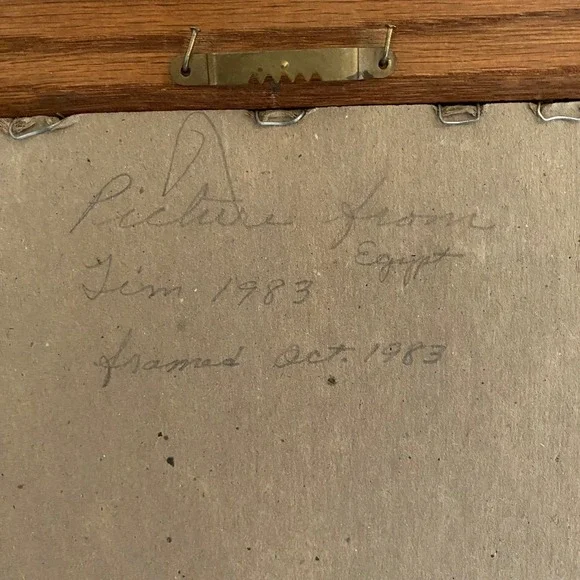 Picture from
Egypt
Tim 1983
framed Oct. 1983